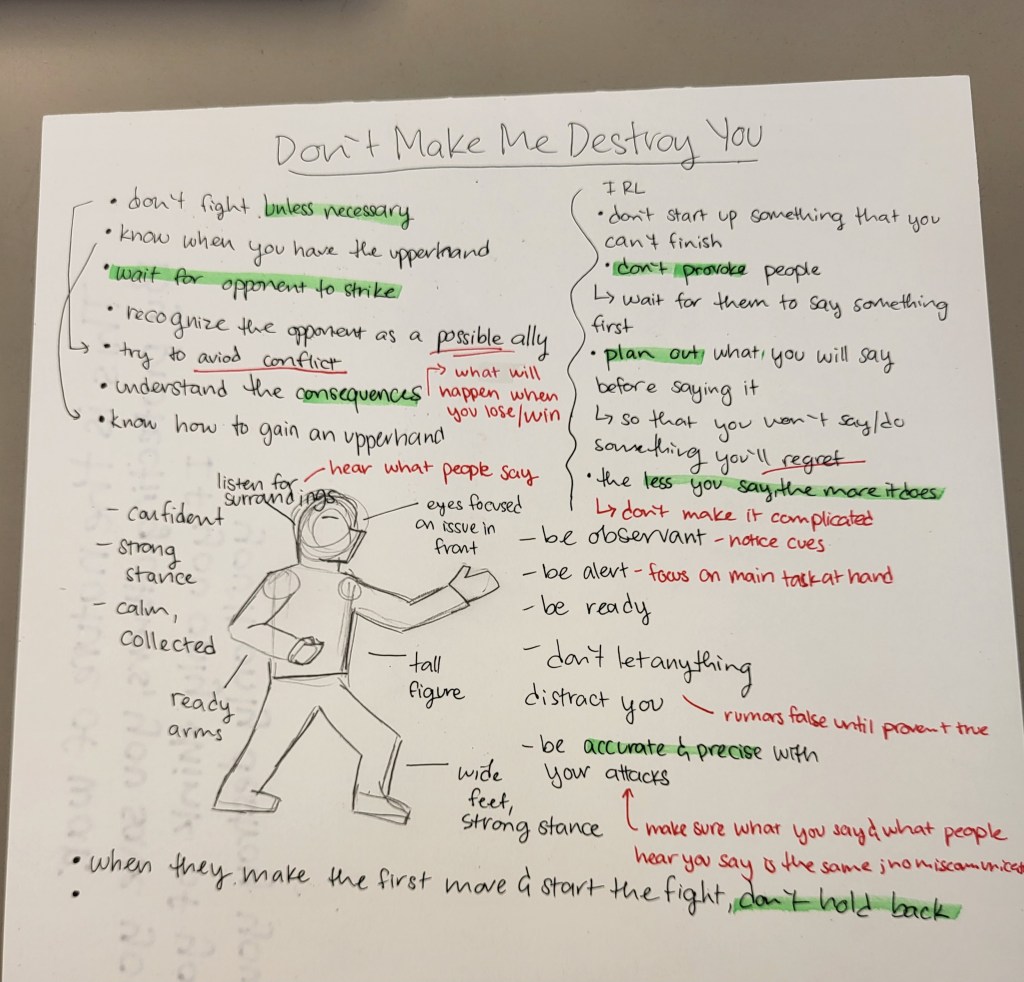 Don't Make Me Destroy You
• don't fight unless necessary
• know when you have the upperhand
• wait for opponent to strike
• recognize the opponent as a possible ally
• try to aviod conflict
• understand the consequences
→ what will
happen when
you lose/win
• know how to gain an upperhand
IRL
• don't start up something that you
can't finish
• don't provoke people
↳ wait for them to say something
first
• plan out what you will say
before saying it
↳ so that you won't say/do
something you'll regret
• the less you say, the more it does
↳ don't make it complicated
listen for
surrandings
hear what people say
- confident
- strong
stance
- calm,
collected
ready
arms
eyes focused
on issue in
front
tall
figure
wide
feet,
strong stance
- be observant - notice cues
- be alert - focus on main task at hand
- be ready
- don't let anything
distract you
rumors false until provent true
- be accurate & precise with
your attacks
make sure what you say & what people
hear you say is the same ; no miscommunicat
• when they make the first move & start the fight, don't hold back
•